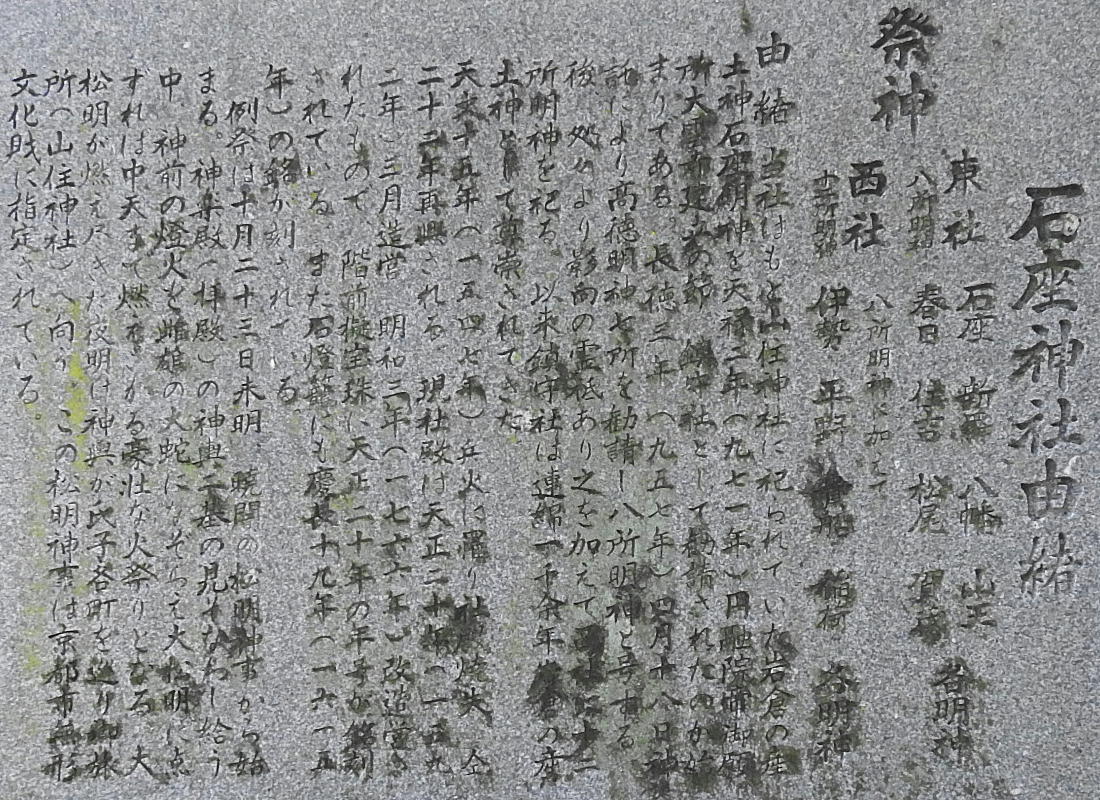 石座神社由緒
祭神
東社 石座 新羅 八幡 山王
八所明神 春日 住吉 松尾 賀茂 各明神
西社 八所明神に加えて
十二所明神 伊勢 平野 貴船 稲荷 各明神
由緒 当社はもと山住神社に祀られていた岩倉の産
土神石座明神を天禄二年(九七一年)円融院帝御願
所大雲寺建立の節 鎮守社として勧請されたのが始
まりである。長徳三年(九五七年)四月十八日神
託により高徳明神七所を勧請し八所明神と号する
後 処々より影向の霊祇あり之を加えて 十二
所明神を祀る。以来鎮守社は連綿一千余年 岩倉の産
土神として尊崇されてきた
天來十五年(一五四七年)兵火に罹り社 焼失 仝
二十二年再興される 現社殿は天正二十 (一五九
二年)三月造営 明和三年(一七六六年)改造営さ
れたもので 階前擬宝珠に天正二十年の年号が銘刻
されている。また石燈籠にも慶長十九年(一六一五
年)の銘が刻されている
例祭は十月二十三日未明 暁闇の松明神事から始
まる。神集殿(拝殿)の神輿二基の見そなわし給う
中 神前の燈火を雌雄の大蛇になぞらえ大松明に点
ずれは中天まで燃えさかる豪壮な火祭りとなる 大
松明が燃え尽きた夜明け神輿が氏子各町を巡り御旅
所(山住神社)へ向う この松明神事は京都市無形
文化財に指定されている。